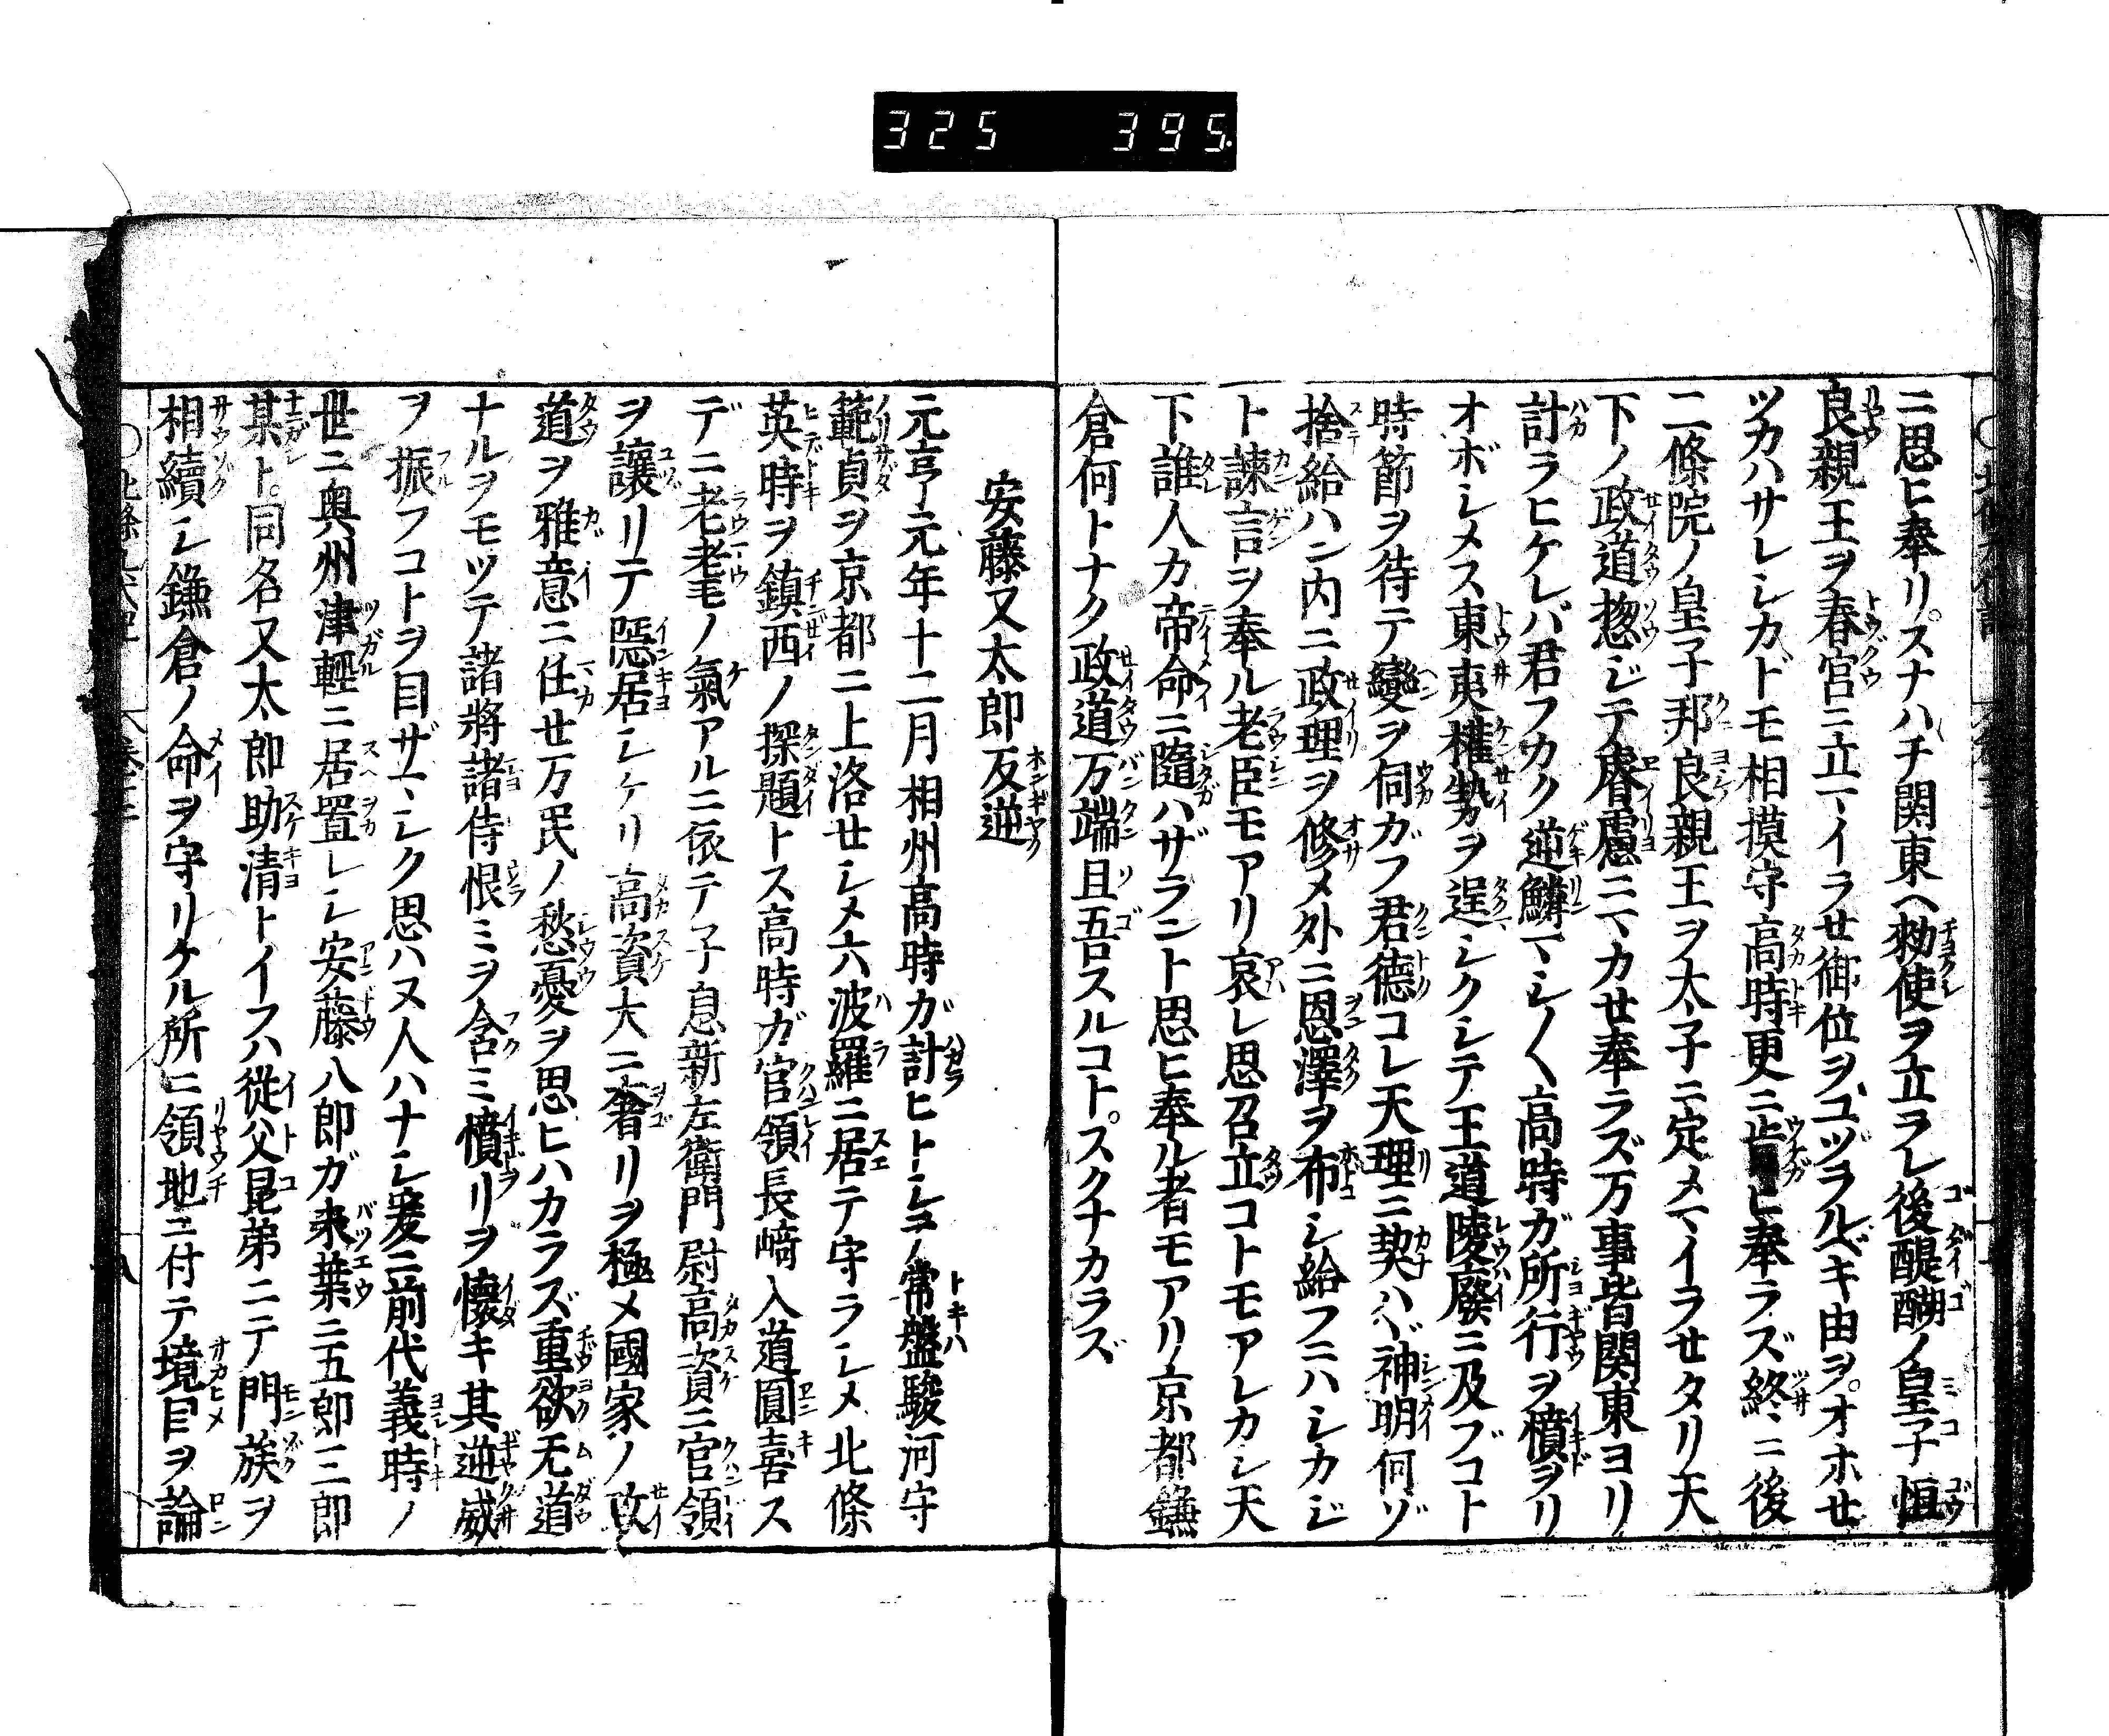 325 395
ニ思ヒ奉リ。スナハチ関東ヘ勅使ヲ立ラレ後醍醐ノ皇子恒
良親王ヲ春宮ニ立マイラせ御位ヲユヅラルベキ由ヲ。オホせ
ツカハサレシカドモ相摸守高時更ニ肯ヒ奉ラズ終ニ後
二條院ノ皇子邦良親王ヲ太子ニ定メマイラせタリ天
下ノ政道惣ジテ睿慮ニマカせ奉ラズ万事皆関東ヨリ
計ラヒケレバ君フカク逆鱗マシ〱高時ガ所行ヲ憤ヲリ
オボシメス東夷權勢ヲ逞シクシテ王道陵廢ニ及ブコト
時節ヲ待テ變ヲ伺ガフ君德コレ天理ニ契ハヾ神明何ゾ
捨給ハン内ニ政理ヲ修メ外ニ恩澤ヲ布シ給フニハシカジ
ト諫言ヲ奉ル老臣モアリ哀レ思召立コトモアレカシ天
下誰人カ帝命ニ隨ハザラント思ヒ奉ル者モアリ京都鎌
倉何トナク政道万端且吾スルコト。スクナカラズ
安藤又太郎反逆
元亨元年十二月相州高時ガ計ヒトシテ常盤駿河守
範貞ヲ京都ニ上洛せシメ六波羅ニ居テ守ラシメ北條
英時ヲ鎮西ノ探題トス高時ガ官領長﨑入道圓喜ス
デニ老耄ノ氣アルニ依テ子息新左衛門尉高資ニ官領
ヲ讓リテ隱居シケリ高資大ニ奢リヲ極メ國家ノ政
道ヲ雅意ニ任せ万民ノ愁憂ヲ思ヒハカラズ重欲无道
ナルヲモツテ諸將諸侍恨ミヲ含ミ憤リヲ懐キ其逆威
ヲ振フコトヲ目ザマシク思ハヌ人ハナシ爰ニ前代義時ノ
世ニ奥州津輕ニ居置レシ安藤八郎ガ末葉ニ五郎三郎
某ト。同名又太郎助清トイフハ從父昆弟ニテ門族ヲ
相續シ鎌倉ノ命ヲ守リケル所ニ領地ニ付テ境目ヲ論